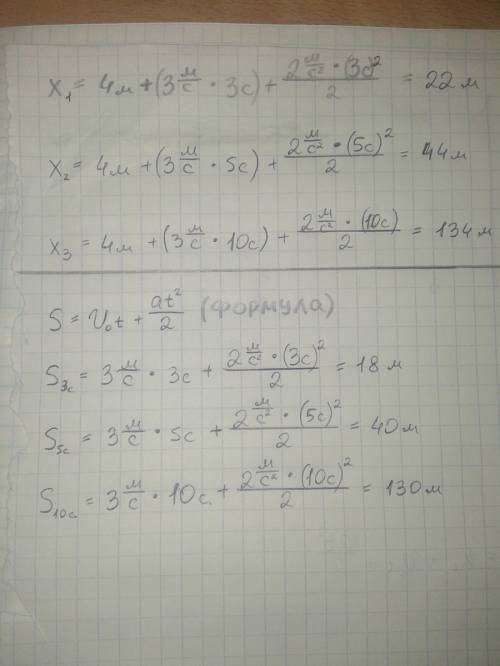 x₁ = 4м + (3 м/с · 3с) + (2 м/с² · (3с)²)/2 = 22 м
x₂ = 4м + (3 м/с · 5с) + (2 м/с² · (5с)²)/2 = 44м
x₃ = 4м + (3 м/с · 10с) + (2 м/с² · (10с))/2 = 134м
S = V₀t + at²/2 (формула)
S₃с = 3 м/с · 3с + (2 м/с² · (3с)²)/2 = 18 м
S₅с = 3 м/с · 5с + (2 м/с² · (5с)²)/2 = 40м
S₁₀с = 3 м/с · 10с. + (2 м/с² · (10с)²)/2 = 130м